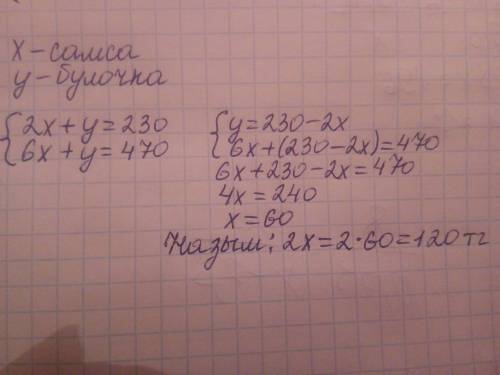 x-самса
y-булочка
{2x+y=230
{6x+y=470
{y=230-2x
{6x+(230-2x)=470
6x+230-2x=470
4x=240
x=60
Назым: 2x=2·60=120 тг